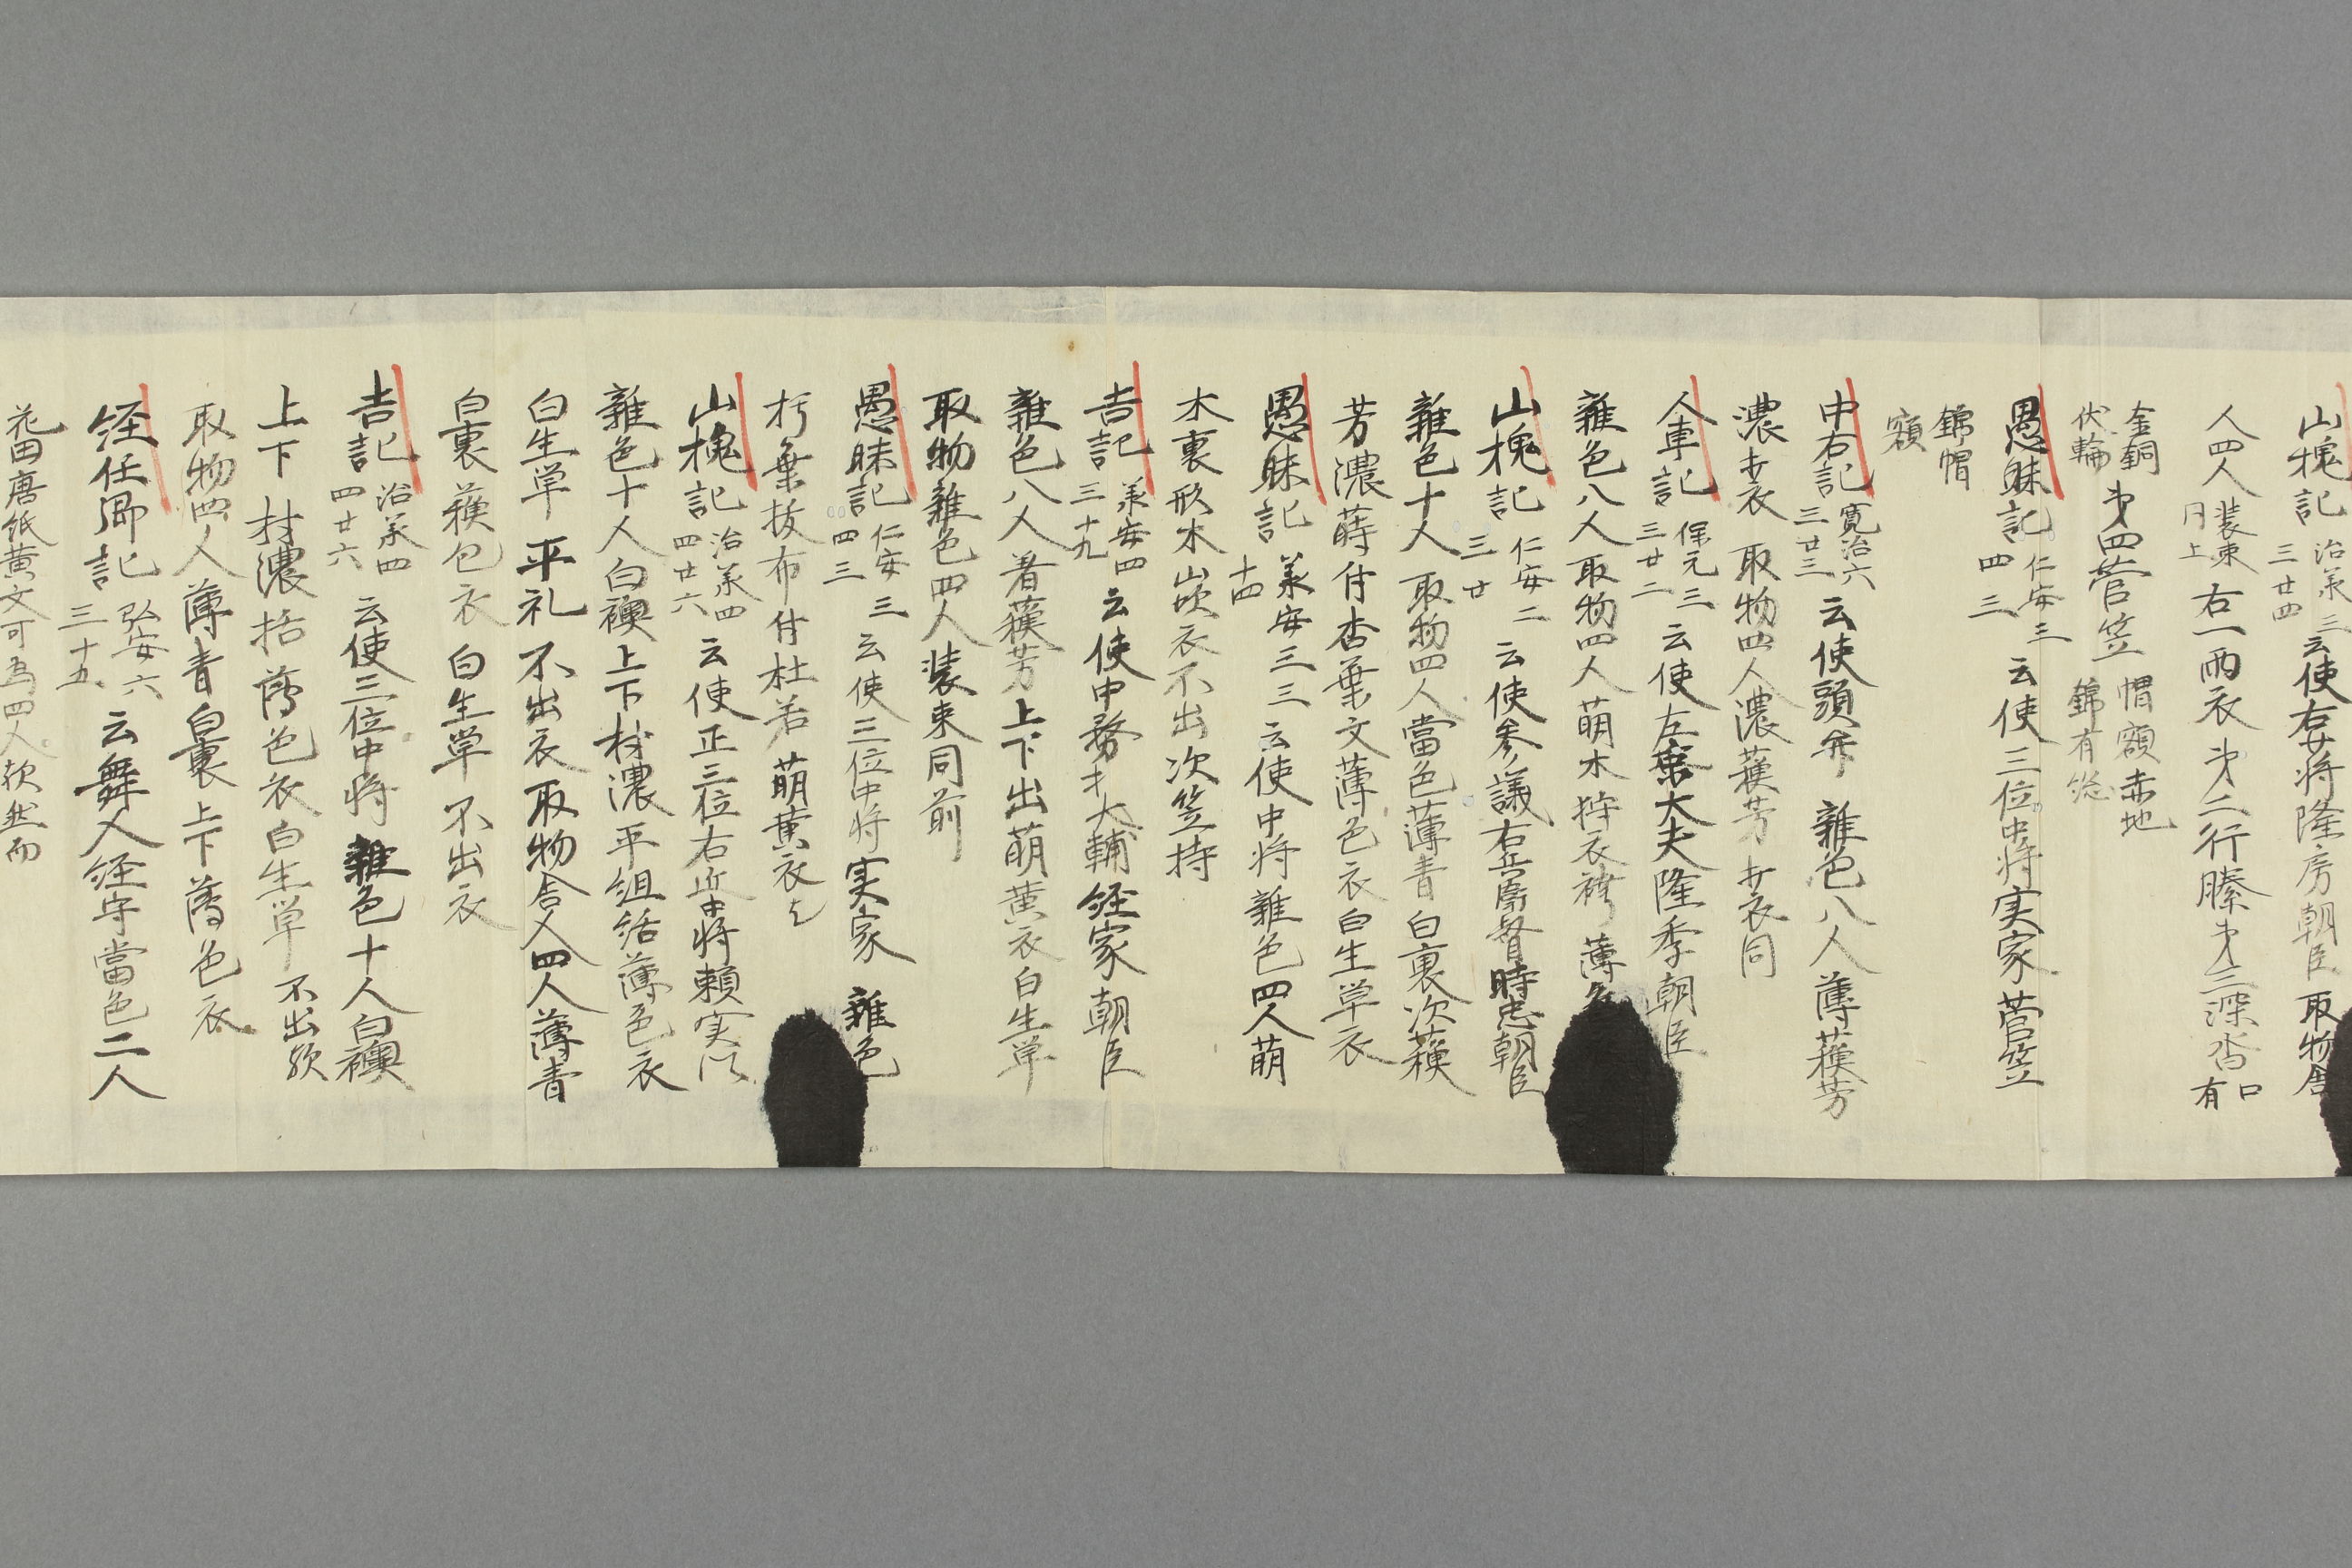 山槐記治承三三廿四云使右少将隆房朝臣取物舎
人四人装束同上右一雨衣第二行縢第三深沓有口
金銅伏輪第四菅笠帽額赤地錦有総
愚昧記仁安三四三云使三位中将実家菅笠
錦帽額
中右記寛治六三廿三云使頭弁雑色八人薄蘓芳
濃打衣取物四人濃蘓芳打衣同
人車記保元三三廿二云使左京大夫隆季朝臣
雑色八人取物四人萌木狩衣袴薄色
山槐記仁安二三廿云使参議右兵衛督時忠朝臣
雑色十人取物四人當色薄青白裏次蘓
芳濃蒔付杏葉文薄色衣白生単衣
愚昧記承安三三十四云使中将雑色四人萌
木裏形木山吹衣不出次笠持
吉記承安四三十九云使中務大輔経家朝臣
雑色八人着蘓芳上下出萌黄衣白生単
取物雑色四人装束同前
愚昧記仁安三四三云使三位中将実家雑色
朽葉抜布付杜若萌黄衣之
山槐記治承四四廿六云使正三位右近中将頼実以
雑色十人白襖上下村濃平組括薄色衣
白生単平礼不出衣取物舎人四人薄青
白裏蘓包衣白生単不出衣
吉記治承四四廿六云使三位中将雑色十人白襖
上下村濃括薄色衣白生単不出歟
取物四人薄青白裏上下薄色衣
経任卿記弘安六三十五云舞人経守當色二人
花田唐紙黄文可為四人歟然而